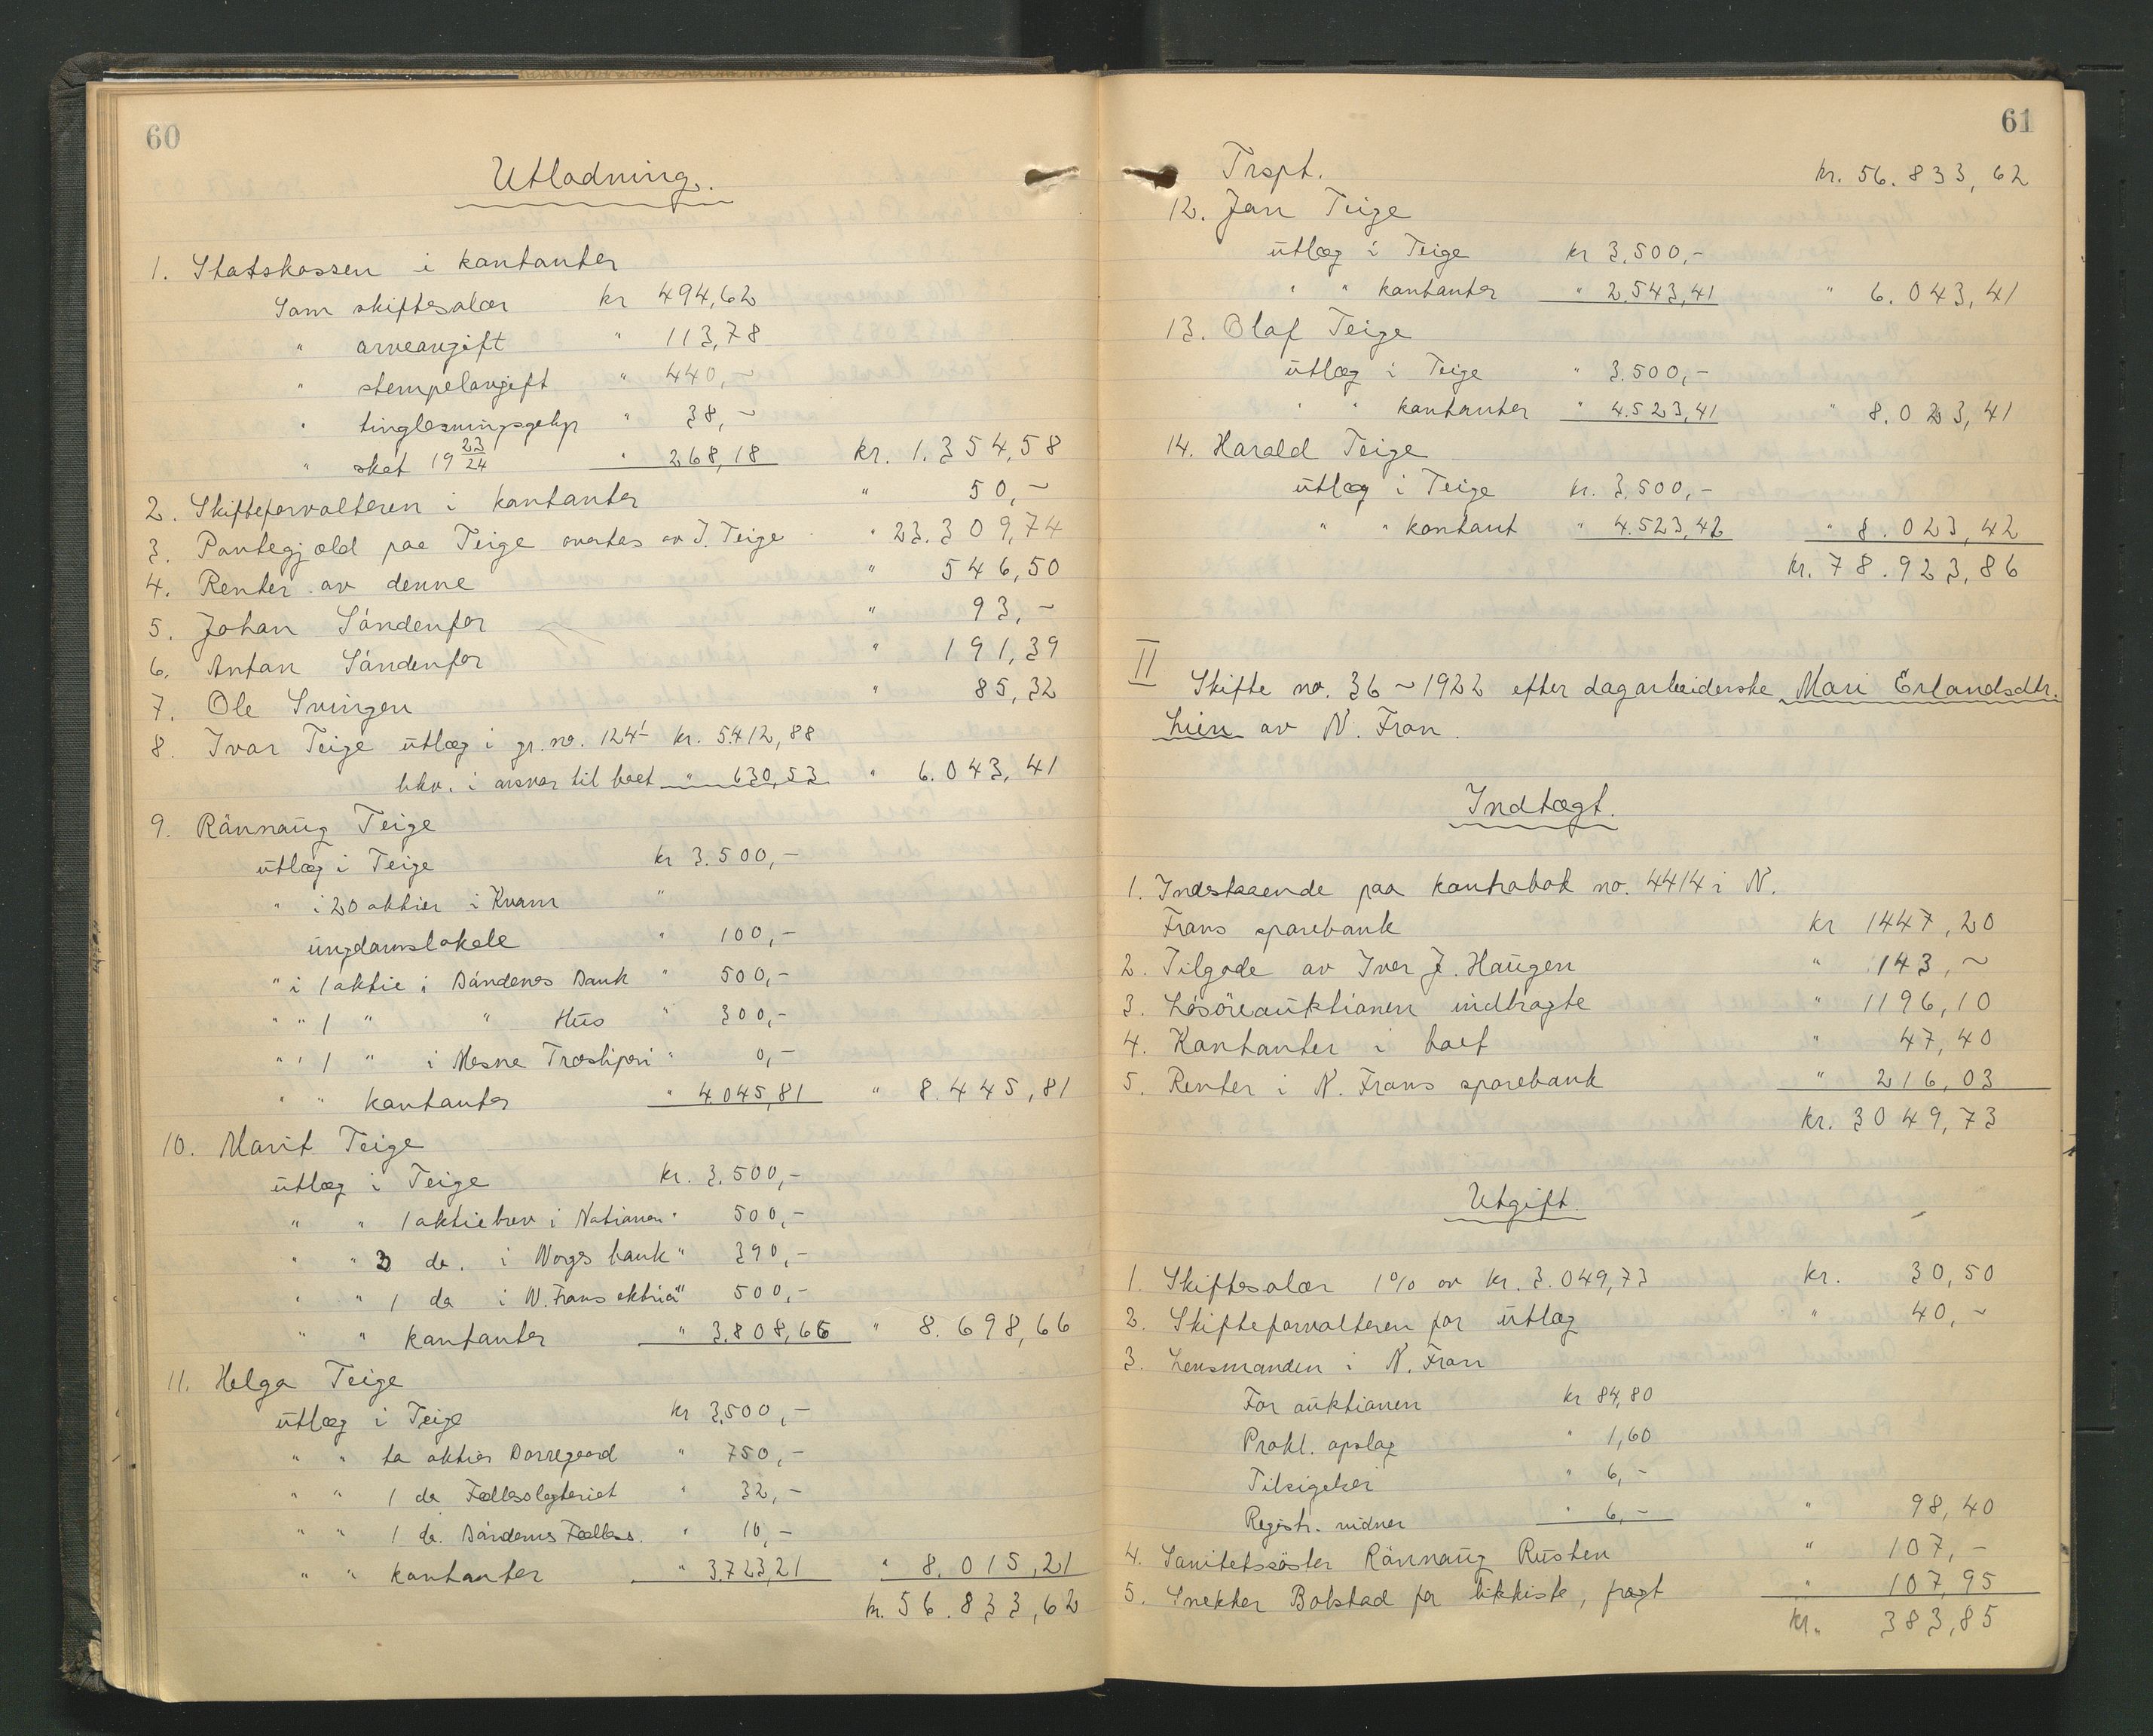 60
Utlodning.
1. Statskassen i kontanter
Som skiftesalær kr 494,62
" arveavgift " 113,78
" stempelavgift " 440,~
" tinglesningsgebyr " 38,~
" skat 19 23/24 " 268,18 kr. 1.354,58
2. Skifteforvalteren i kontanter " 50,~
3. Pantegjæld paa Teige overtas av J. Teige " 23.309,74
4. Renter av denne " 546,50
5. Johan Söndenfor " 93,~
6. Anton Söndenfor " 191,39
7. Ole Svingen " 85,32
8. Ivar Teige utlæg i gr. no. 124¹ kr. 5412,88
bkv. i ansvar til boet " 630,53 " 6.043,41
9. Rönnaug Teige
utlæg i Teige kr 3.500,-
" i 20 aktier i Kvam "
ungdomslokale " 100,-
" i 1 aktie i Böndenes Bank " 500,-
" " 1 " " Hus " 300,-
" " 1 " i Mesna Træsliperi " 0,-
" " kontanter " 4.045,81 " 8.445,81
10. Marit Teige
utlæg i Teige kr. 3.500,-
" " 1 aktiebrev i Nationen " 500,-
" " 3 do. i Norges bank " 390,-
" " 1 do i N. Frons 500,-
" " kontanter " 3.808,66 " 8.698,66
11. Helga Teige
utlæg i Teige kr 3.500,-
" " to aktier Borregaard " 750,-
" " 1 do Fællesslagteriet " 32,-
" " 1 do. Böndernes Fælles. " 10,-
" " kontanter " 3.723,21 " 8.015,21
kr. 56.833,62
61
Trspt. kr. 56.833,62
12. Jon Teige
utlæg i Teige kr 3.500,-
" " kontanter " 2.543,41 " 6.043,41
13. Olaf Teige
utlæg i Teige " 3.500,-
" " kontanter " 4.523,41 " 8.023,41
14. Harald Teige
utlæg i Teige kr. 3.500,-
" " kontant " 4.523,42 " 8.023,42
kr. 78.923,86
II
Skifte no. 36 ~ 1922 efter dagarbeiderske Mari Erlandsdtr.
Lien av N. Fron.
Indtægt.
1. Indestaaende paa kontrabok no. 4414 i N.
Frons sparebank kr 1447,20
2. Tilgode av Iver J. Haugen " 143,~
3. Lösöreauktionen indbragte " 1196,10
4. Kontanter i boet " 47,40
5. Renter i N. Frons sparebank " 216,03
kr. 3049,73
Utgift.
1. Skiftesalær 1% av kr. 3.049,73 kr. 30,50
2. Skifteforvalteren for utlæg " 40,~
3. Lensmanden i N. Fron
For auktionen kr 84,80
Prokl. opslag " 1,60
Tilsigelser " 6,-
Registr. vidner " 6,- " 98,40
4. Sanitetssöster Rönnaug Rusten " 107,-
5. Snekker Bolstad for likkiste, fragt " 107,95
kr. 383,85